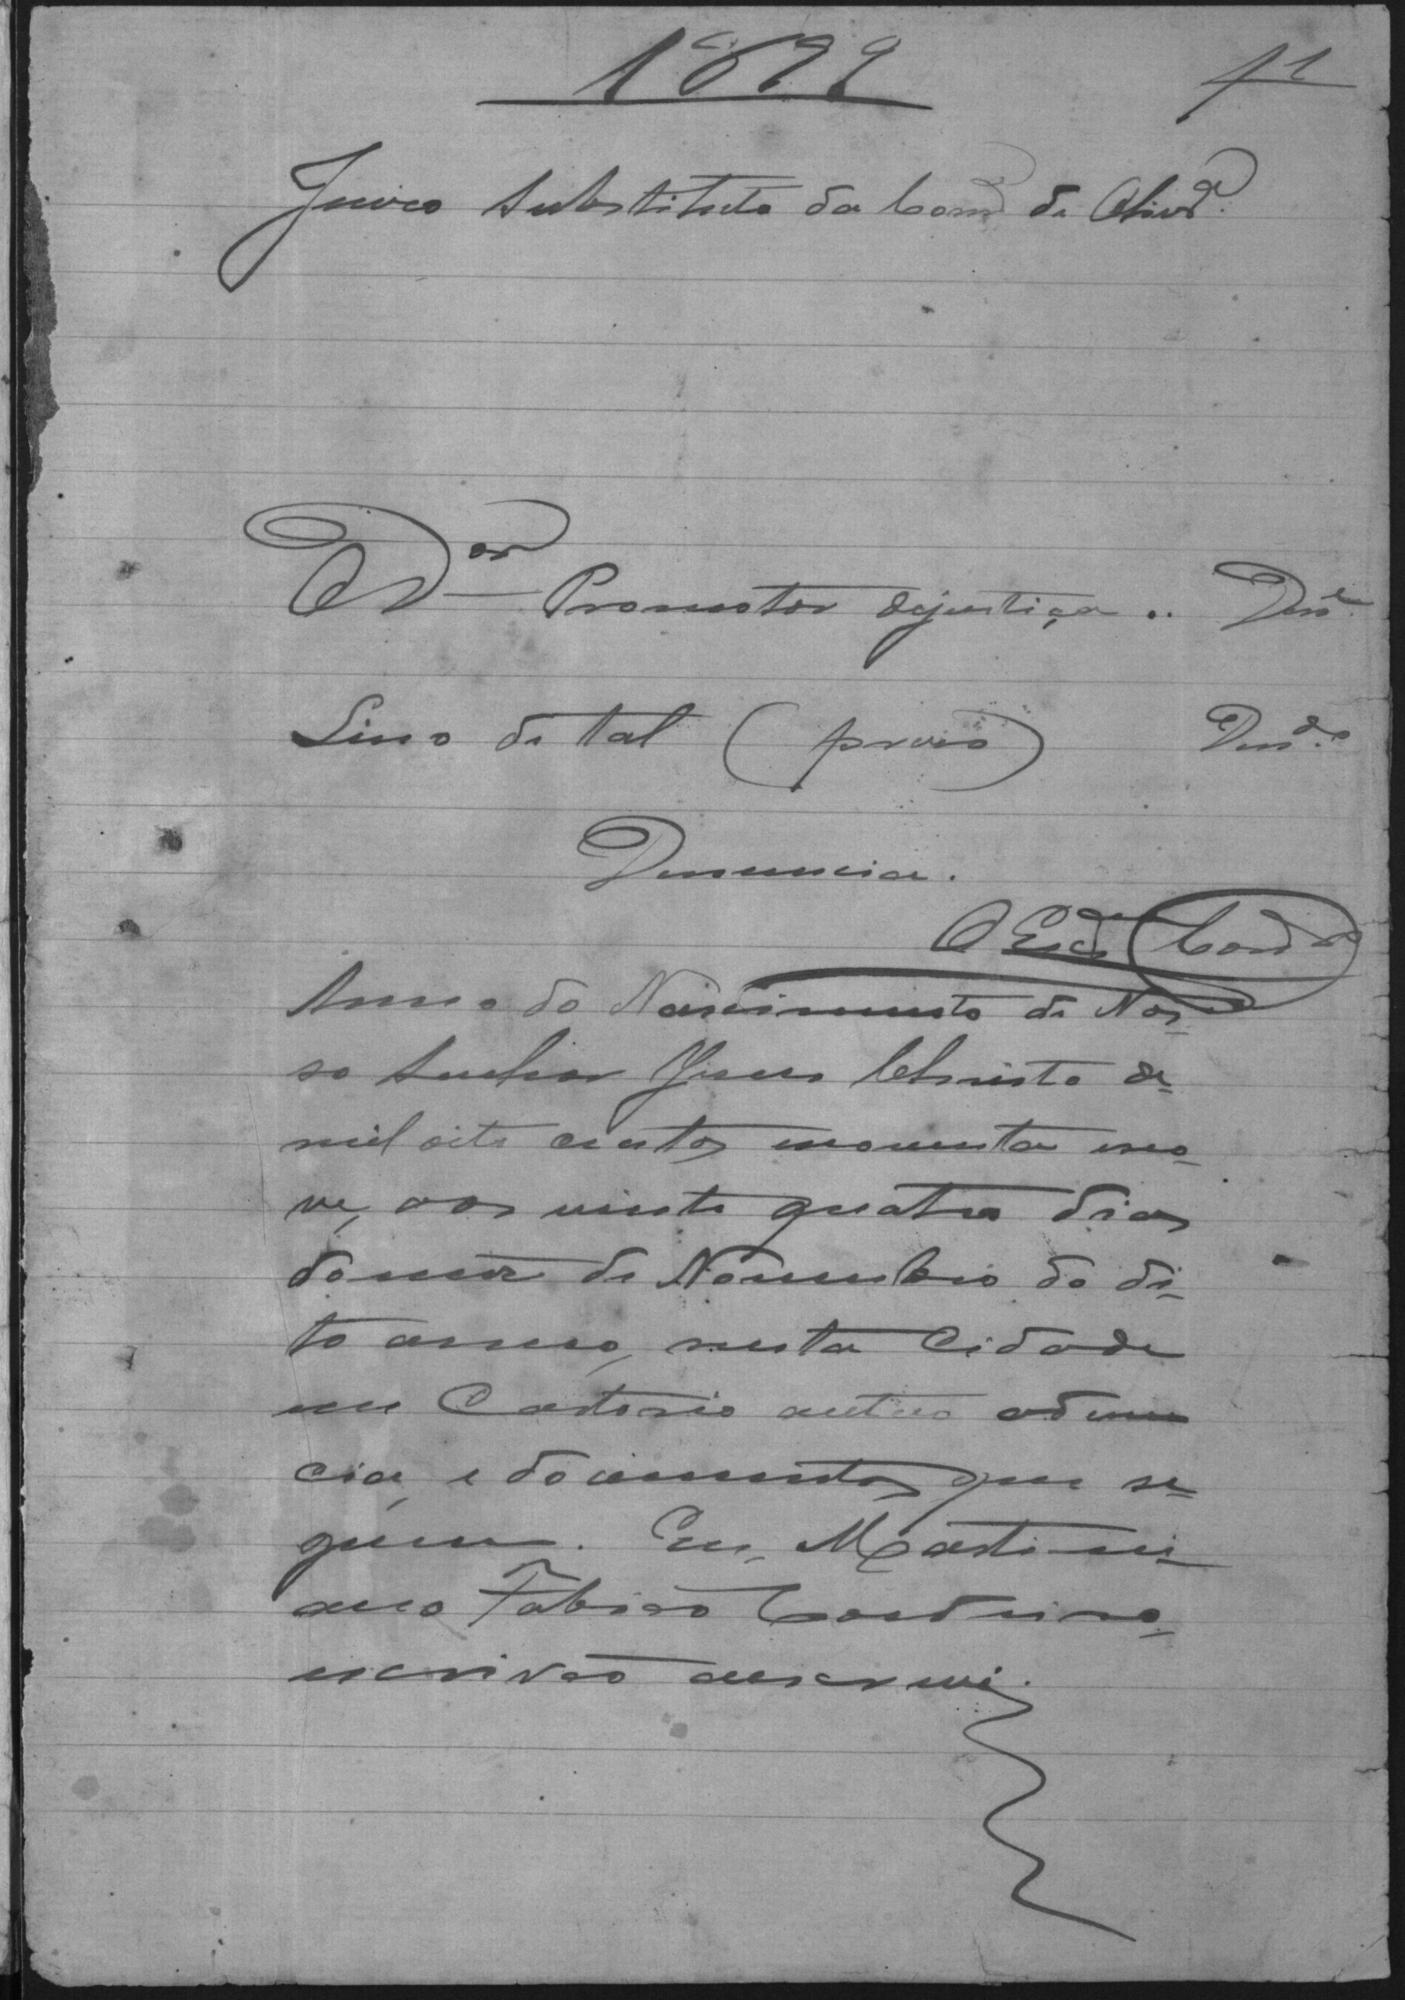 1899 f1
Juizo Substituto da Com.ca de Oliv.ra
O Dor Promotor dejustiça .. Den.te
Lino de tal (prezo) Den.do
Denuncia.
O Esc.am Cord.ro
Anno do Nascimento de Nos-
so Senhor Jesus Christo de
mil oito centos noventa no-
ve, aos vinte quatro dias
domez de Novembro do di-
to anno, nesta Cidade
em Cartorio autuo adenun
cia, e documentos que se-
guem. Eu, Martini-
ano Fabiano Cordeiro,
escrivão aescrevi.